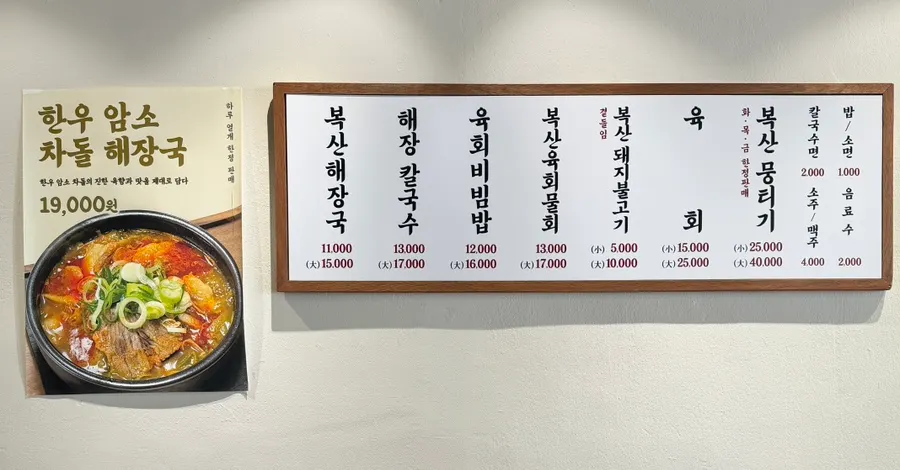 한우 암소
차돌 해장국
하루 열개 한정 판매
한우 암소 차돌의 진한 육향과 맛을 제대로 담다
19,000원
복산해장국
11.000
(大) 15.000
해장 칼국수
13.000
(大) 17.000
육회비빔밥
12.000
(大) 16.000
복산육회물회
13.000
(大) 17.000
곁들임
복산 돼지불고기
(小) 5.000
(大) 10.000
육회
(小) 15.000
(大) 25.000
화·목·금 한정판매
복산 뭉티기
(小) 25.000
(大) 40.000
칼국수면
2.000
소주/맥주
4.000
밥/소면
1.000
음료수
2.000